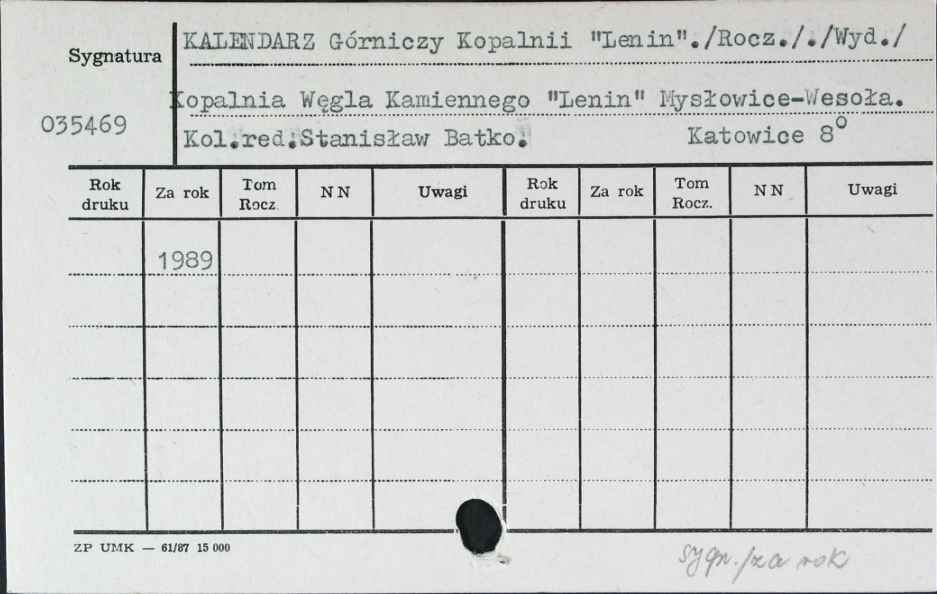 Sygnatura
KALENDARZ Górniczy Kopalnii "Lenin"./Rocz./,/Wyd./
Kopalnia Węgla Kamiennego "Lenin" Mysłowice-Wesoła.
035469
Kol.red.:Stanisław Batko. Katowice 8°
Rok druku Za rok Tom Rocz. N N Uwagi Rok druku Za rok Tom Rocz. N N Uwagi
1989
ZP UMK — 61/87 15 000
sygn./za rok